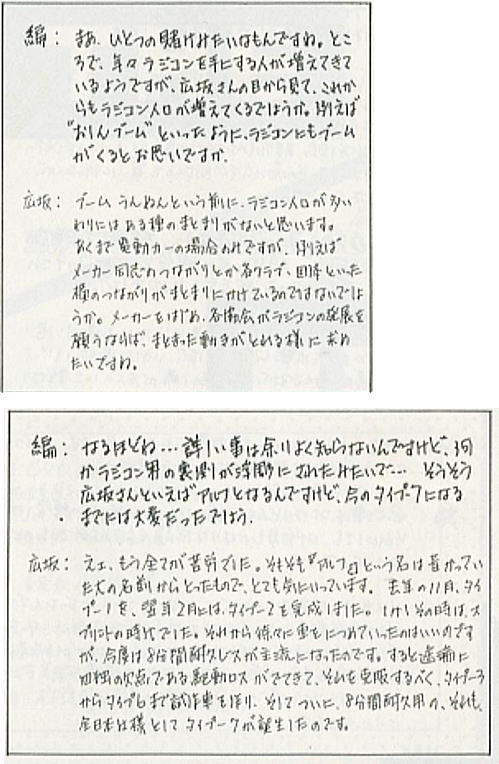 編： まあ、ひとつの賭けみたいなもんですね。とこ
ろで、年々ラジコンを手にする人が増えてきて
いるようですが、広坂さんの目から見て、これか
らもラジコン人口が増えてくるでしょうか。例えば
"おりんブーム"といったように、ラジコンにもブーム
がくるとお思いですか。
広坂： ブームうんぬんという前に、ラジコン人口が多い
わりにはある種のまとまりがないと思います。
あくまで電動カーの場合のみですが、例えば
メーカー同志のつながりとか各クラブ、団体といった
横のつながりがまとまりにかけているのではないでしょ
うか。メーカーをはじめ、各協会がラジコンの発展を
願うならば、まとまった動きがとれる様に求め
たいですね。
編： なるほどね…詳しい事は余りよく知らないんですけど、何
かラジコン界の裏側が浮彫にされたみたいで… そうそう
広坂さんといえばアルフとなるんですけど、今のタイプ7になる
までには大変だったでしょう。
広坂： ええ、もう全てが苦労でした。そもそも『アルフ』という名は昔かってい
た犬の名前からとったもので、とても気にいっています。去年の11月、タイ
プ1を、翌年2月には、タイプ2を完成しました。しかし、その時は、ス
プリントの時代でした。それから徐々に車をにつめていったのはいいのです
が、今度は8分間耐久レースが主流になったのです。すると途端に
四独の欠点である駆動ロスがでてきて、それを克服するべく、タイプ3
からタイプ6まで試作車を作り、そしてついに、8分間耐久用の、それも、
全日本仕様としてタイプ7が誕生したのです。